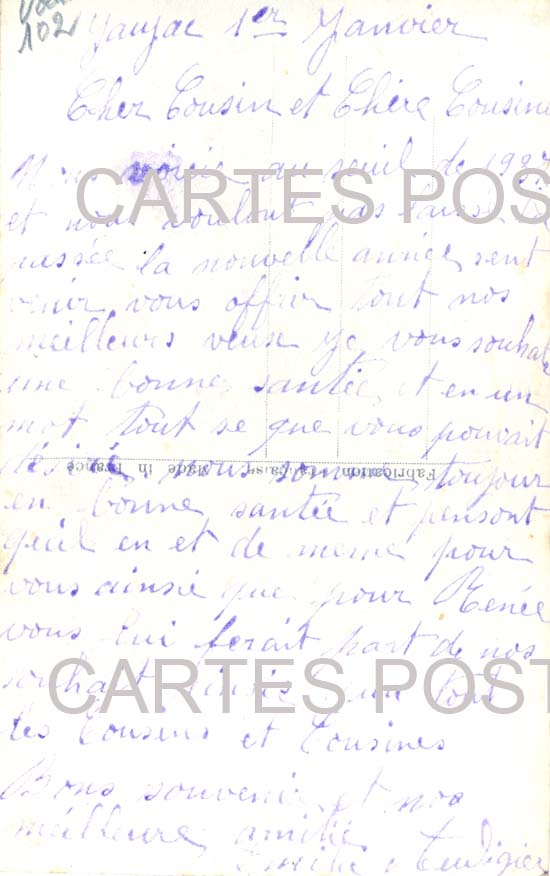 102
Jaujac 1er Janvier
Cher Cousin et Chère Cousine
voicie au seuil de 1937
CARTES POST
et nous voulont pas laisse
la nouvelle année sent
venir vous offrir tout nos
meilleurs veux je vous souhaite
une bonne santée et en un
mot tout se que vous pouvait
désiré nous sommes toujour
Fabrication Française Made in France
en bonne santée et pensont
qu'il en et de meme pour
vous ainsie que pour Renée
vous lui ferait part de nos
souhait ainsie que tout
CARTES POST
les Cousins et Cousines
Bons souvenir et nos
meilleure amitié